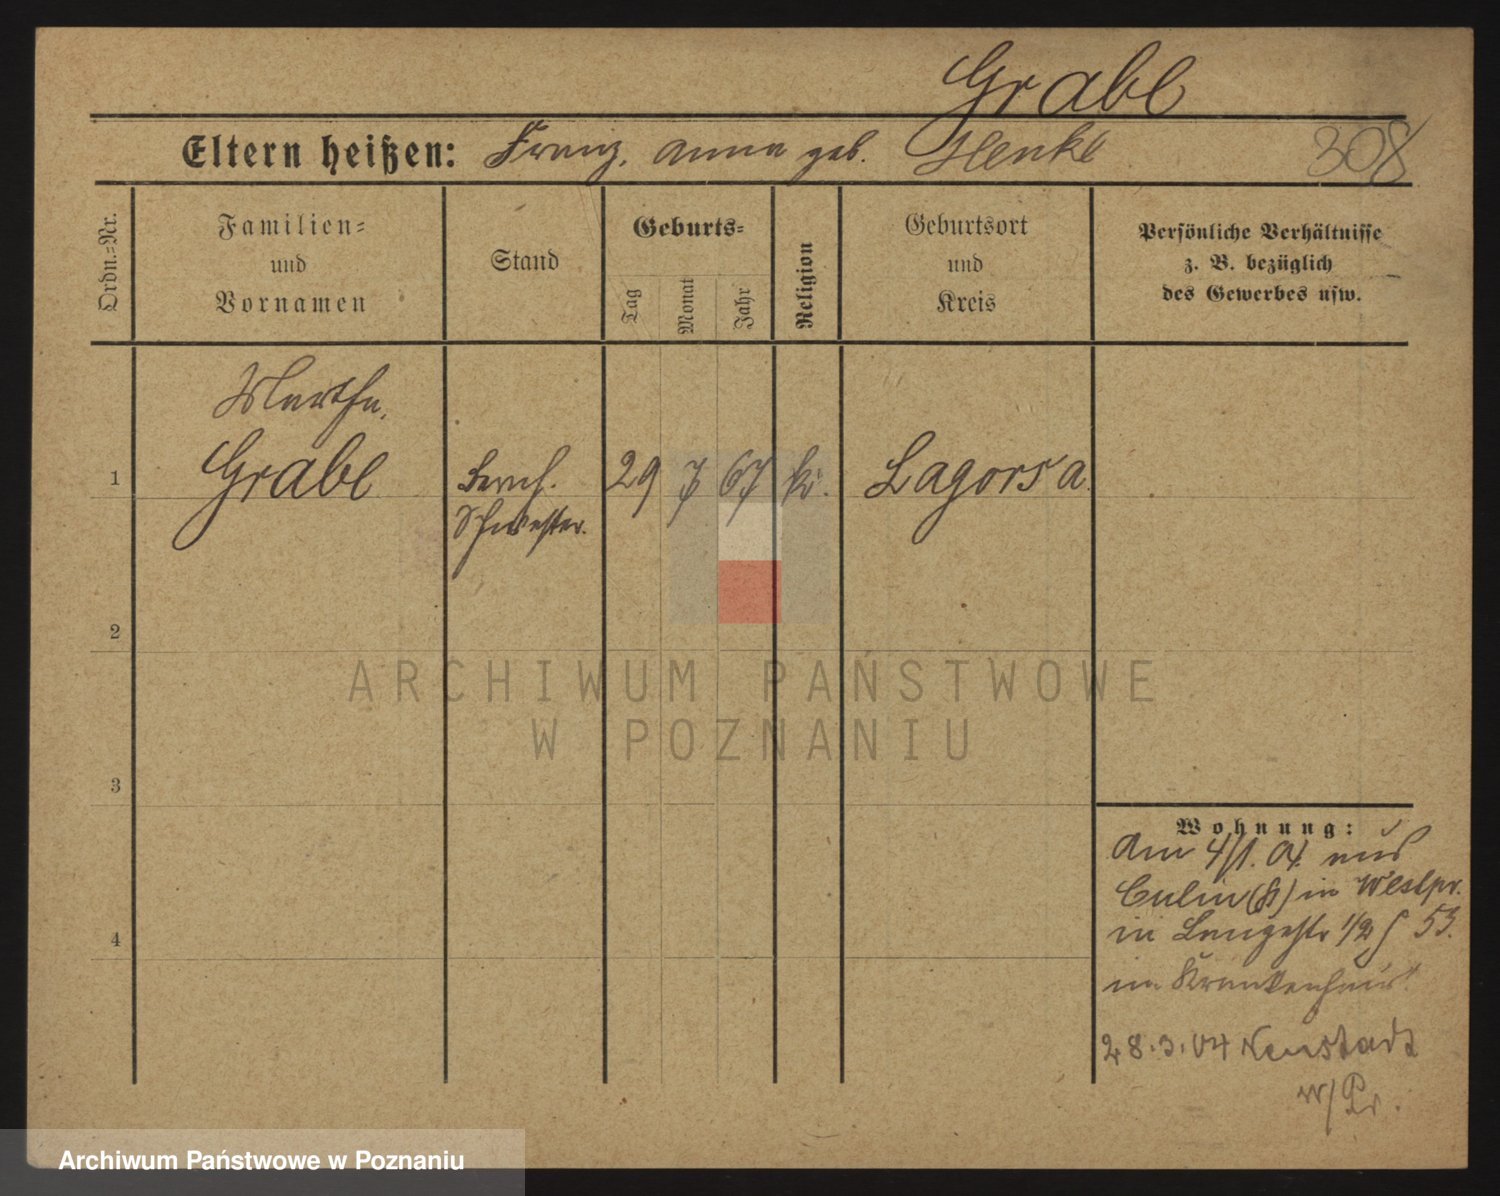 Grabe
Eltern heißen: Franz, Anna geb. Henke 308
Ordn.=Nr.
Familien=
und
Vornamen
Stand
Geburts=
Tag
Monat
Jahr
Religion
Geburtsort
und
Kreis
Persönliche Verhältnisse
z. B. bezüglich
des Gewerbes usw.
Martha,
1 Grabe 29 7 67 k. Lagorsa
Schwester.
2
3
4
Wohnung:
Am 4/1. 04 aus
Culm (k) in Westpr.
in Langestr 1/2 53.
im Krankenhaus.
28.3.04 Neustadt
w/Pr.
ARCHIWUM PAŃSTWOWE
W POZNANIU
Archiwum Państwowe w Poznaniu